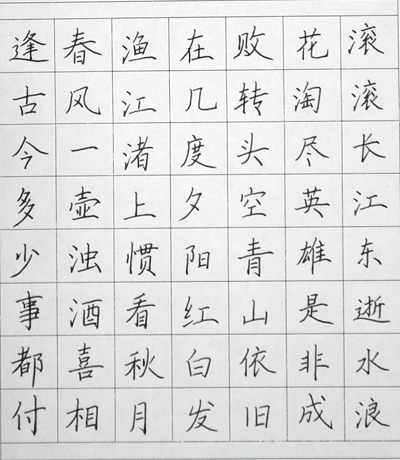 滚滚长江东逝水浪
花淘尽英雄是非成
败转头空青山依旧
在几度夕阳红白发
渔江渚上惯看秋月
春风一壶浊酒喜相
逢古今多少事都付